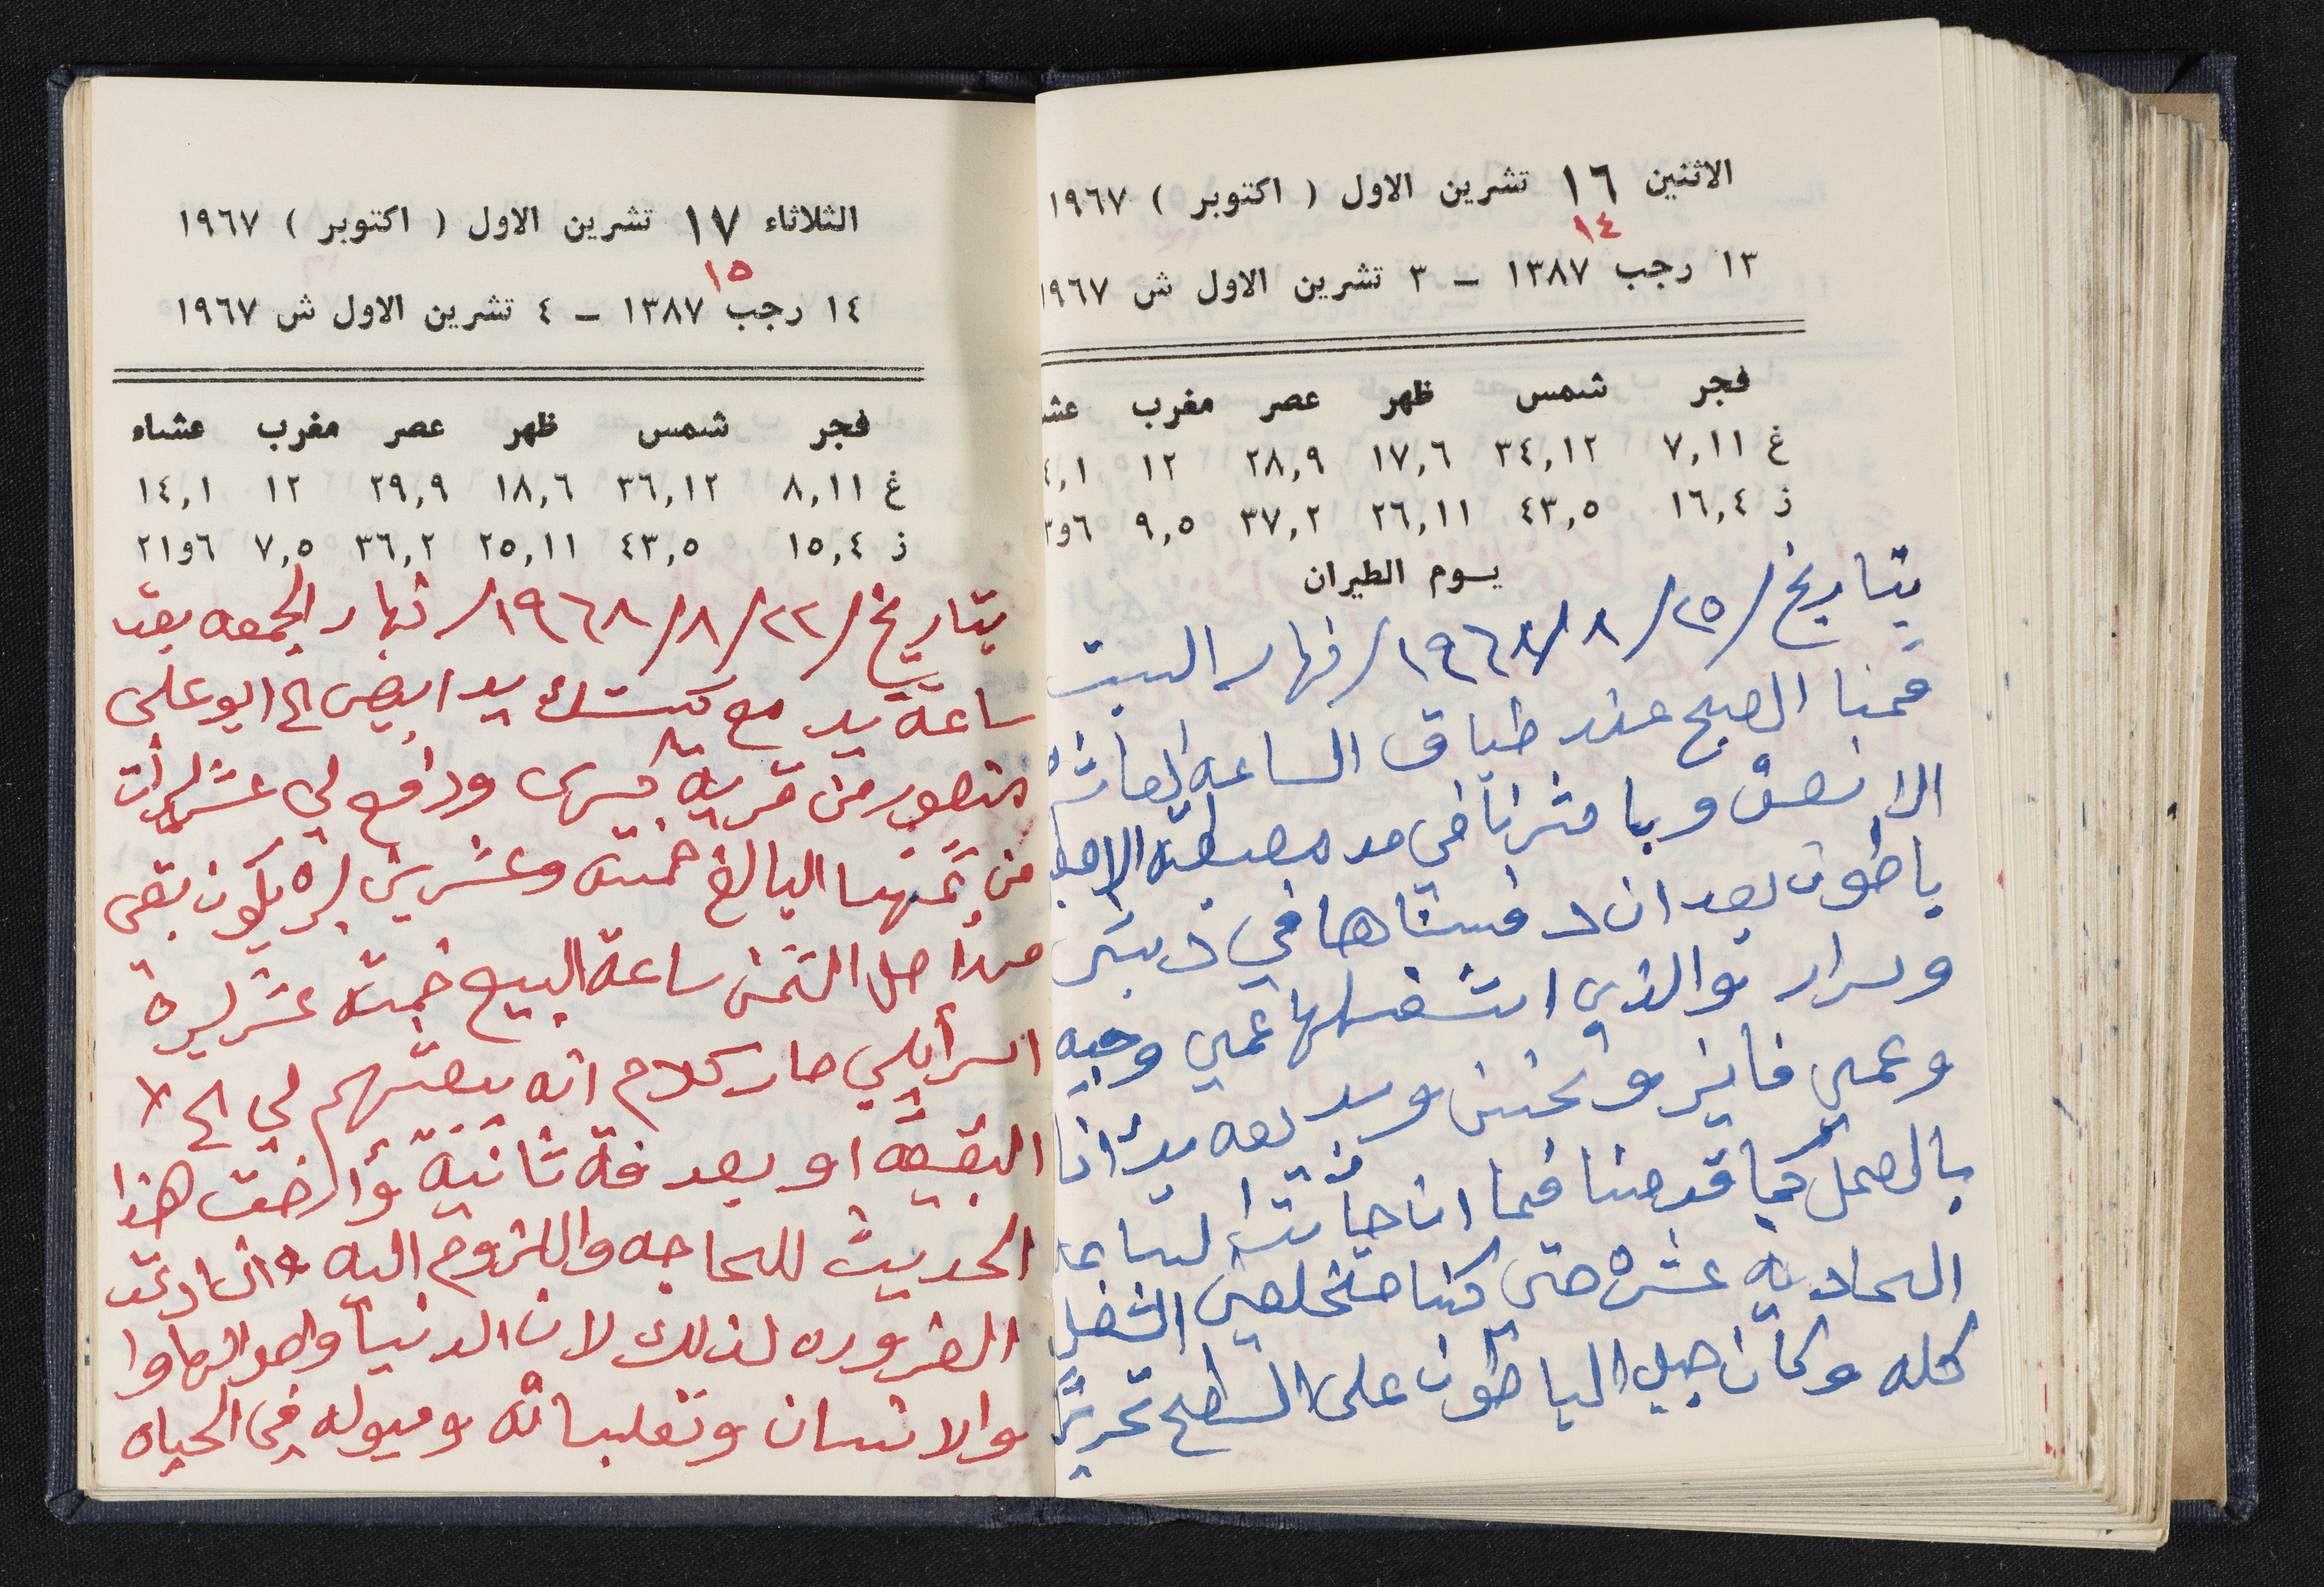 الاثنين ١٦ تشرين الاول ( اكتوبر ) ١٩٦٧
١٤
١٣ رجب ١٣٨٧ – ٣ تشرين الاول ش ١٩٦٧
فجر شمس ظهر عصر مغرب عشا
غ ٧,١١ ٣٤,١٢ ١٧,٦ ٢٨,٩ ١٢ ٤,١
ز ١٦,٤ ٤٣,٥ ٢٦,١١ ٣٧,٢ ٩,٥ ٦و٣
يوم الطيران
بتاريخ /٢٥/ ٨/ ١٩٦٨/ نهار السبت
قمنا الصبح عند طباق الساعه العاشره
الا نصف وباشرنا في مد مصطبة
باطون بعد ان دفسناها في دبش
وسرار والذي اشتغلها عمي وجيه
وعمي فايز ونحن وبديعه
بالعمل كما قدمنا فما ان حانت الساعه
الحاديه عشره حتى كنا مخلصين الشغل
كله وكان جبل الباطون على السطح
الثلاثاء ١٧ تشرين الاول ( اكتوبر ) ١٩٦٧
١٥
١٤ رجب ١٣٨٧ – ٤ تشرين الاول ش ١٩٦٧
فجر شمس ظهر عصر مغرب عشاء
غ ٨,١١ ٣٦,١٢ ١٨,٦ ٢٩,٩ ١٢ ١٤,١
ز ١٥,٤ ٤٣,٥ ٢٥,١١ ٣٦,٢ ٧,٥ ٦و٢١
بتاريخ /٢٢/ ٨/ ١٩٦٨/ نهار الجمعه بعت
ساعة يد مع كستك يد ابيض الى ابو علي
منصور من قرية ودافع لي عشر ليرات
من ثمنها البالغ خمسة وعشرين لره يكون بقي
من اصل الثمن ساعة البيع خمسة عشر ليرة
اسرأيلي صار كلام انه يبعتهم لي الى
البقيعه او بعد فة ثانية وأرخت هذا
الحديث للحاجه واللزوم اليه ان ادعت
الضروره لذلك لان الدنيا واحوالها وا
والانسان وتقلباته وميوله في الحياه